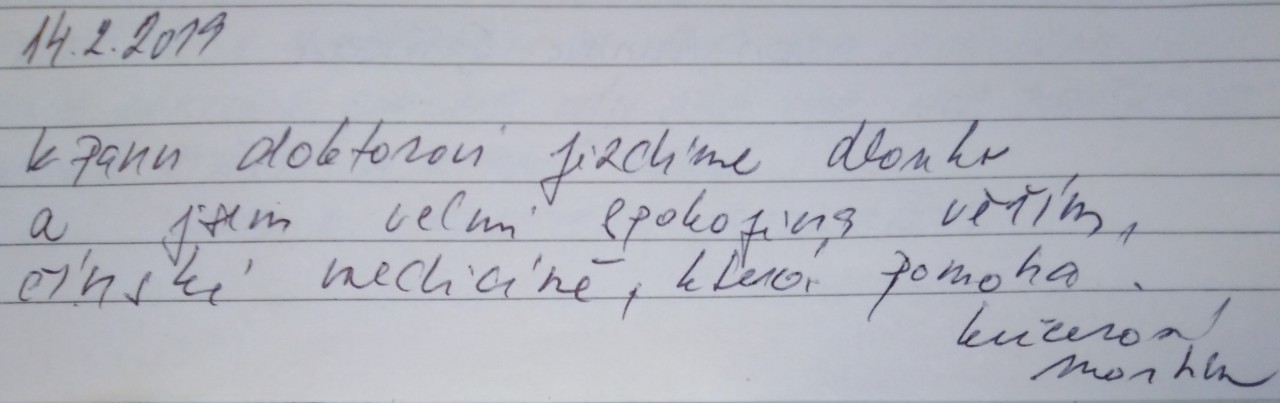 14.2.2019
k panu doktorovi jizdíme dlouho
a jsem velmi spokojená věřím,
čínské medicíně, která pomáhá.
kučerová